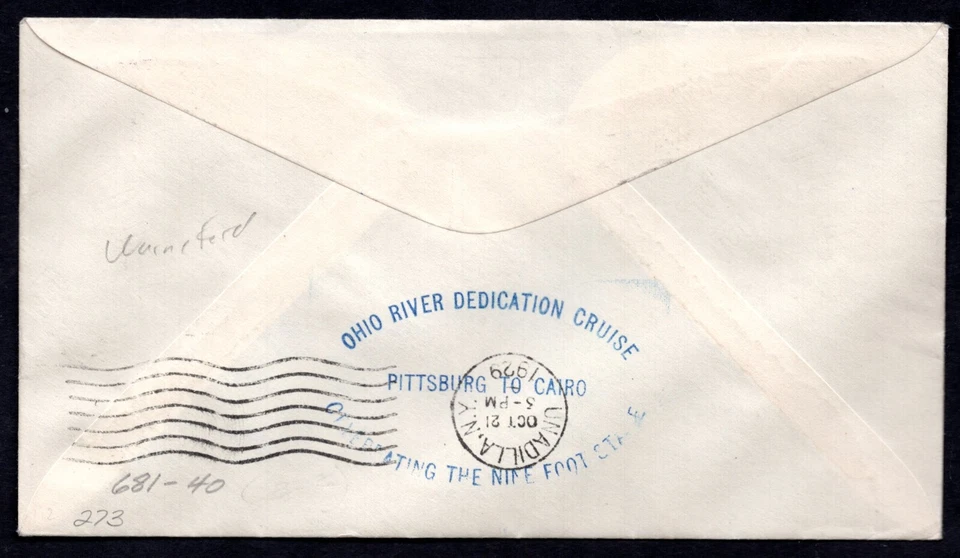 OHIO RIVER DEDICATION CRUISE
PITTSBURG TO CAIRO
ATING THE NINE FOOT STAGE
UNADILLA, N.Y.
OCT 21
5-PM
1929
681-40
273